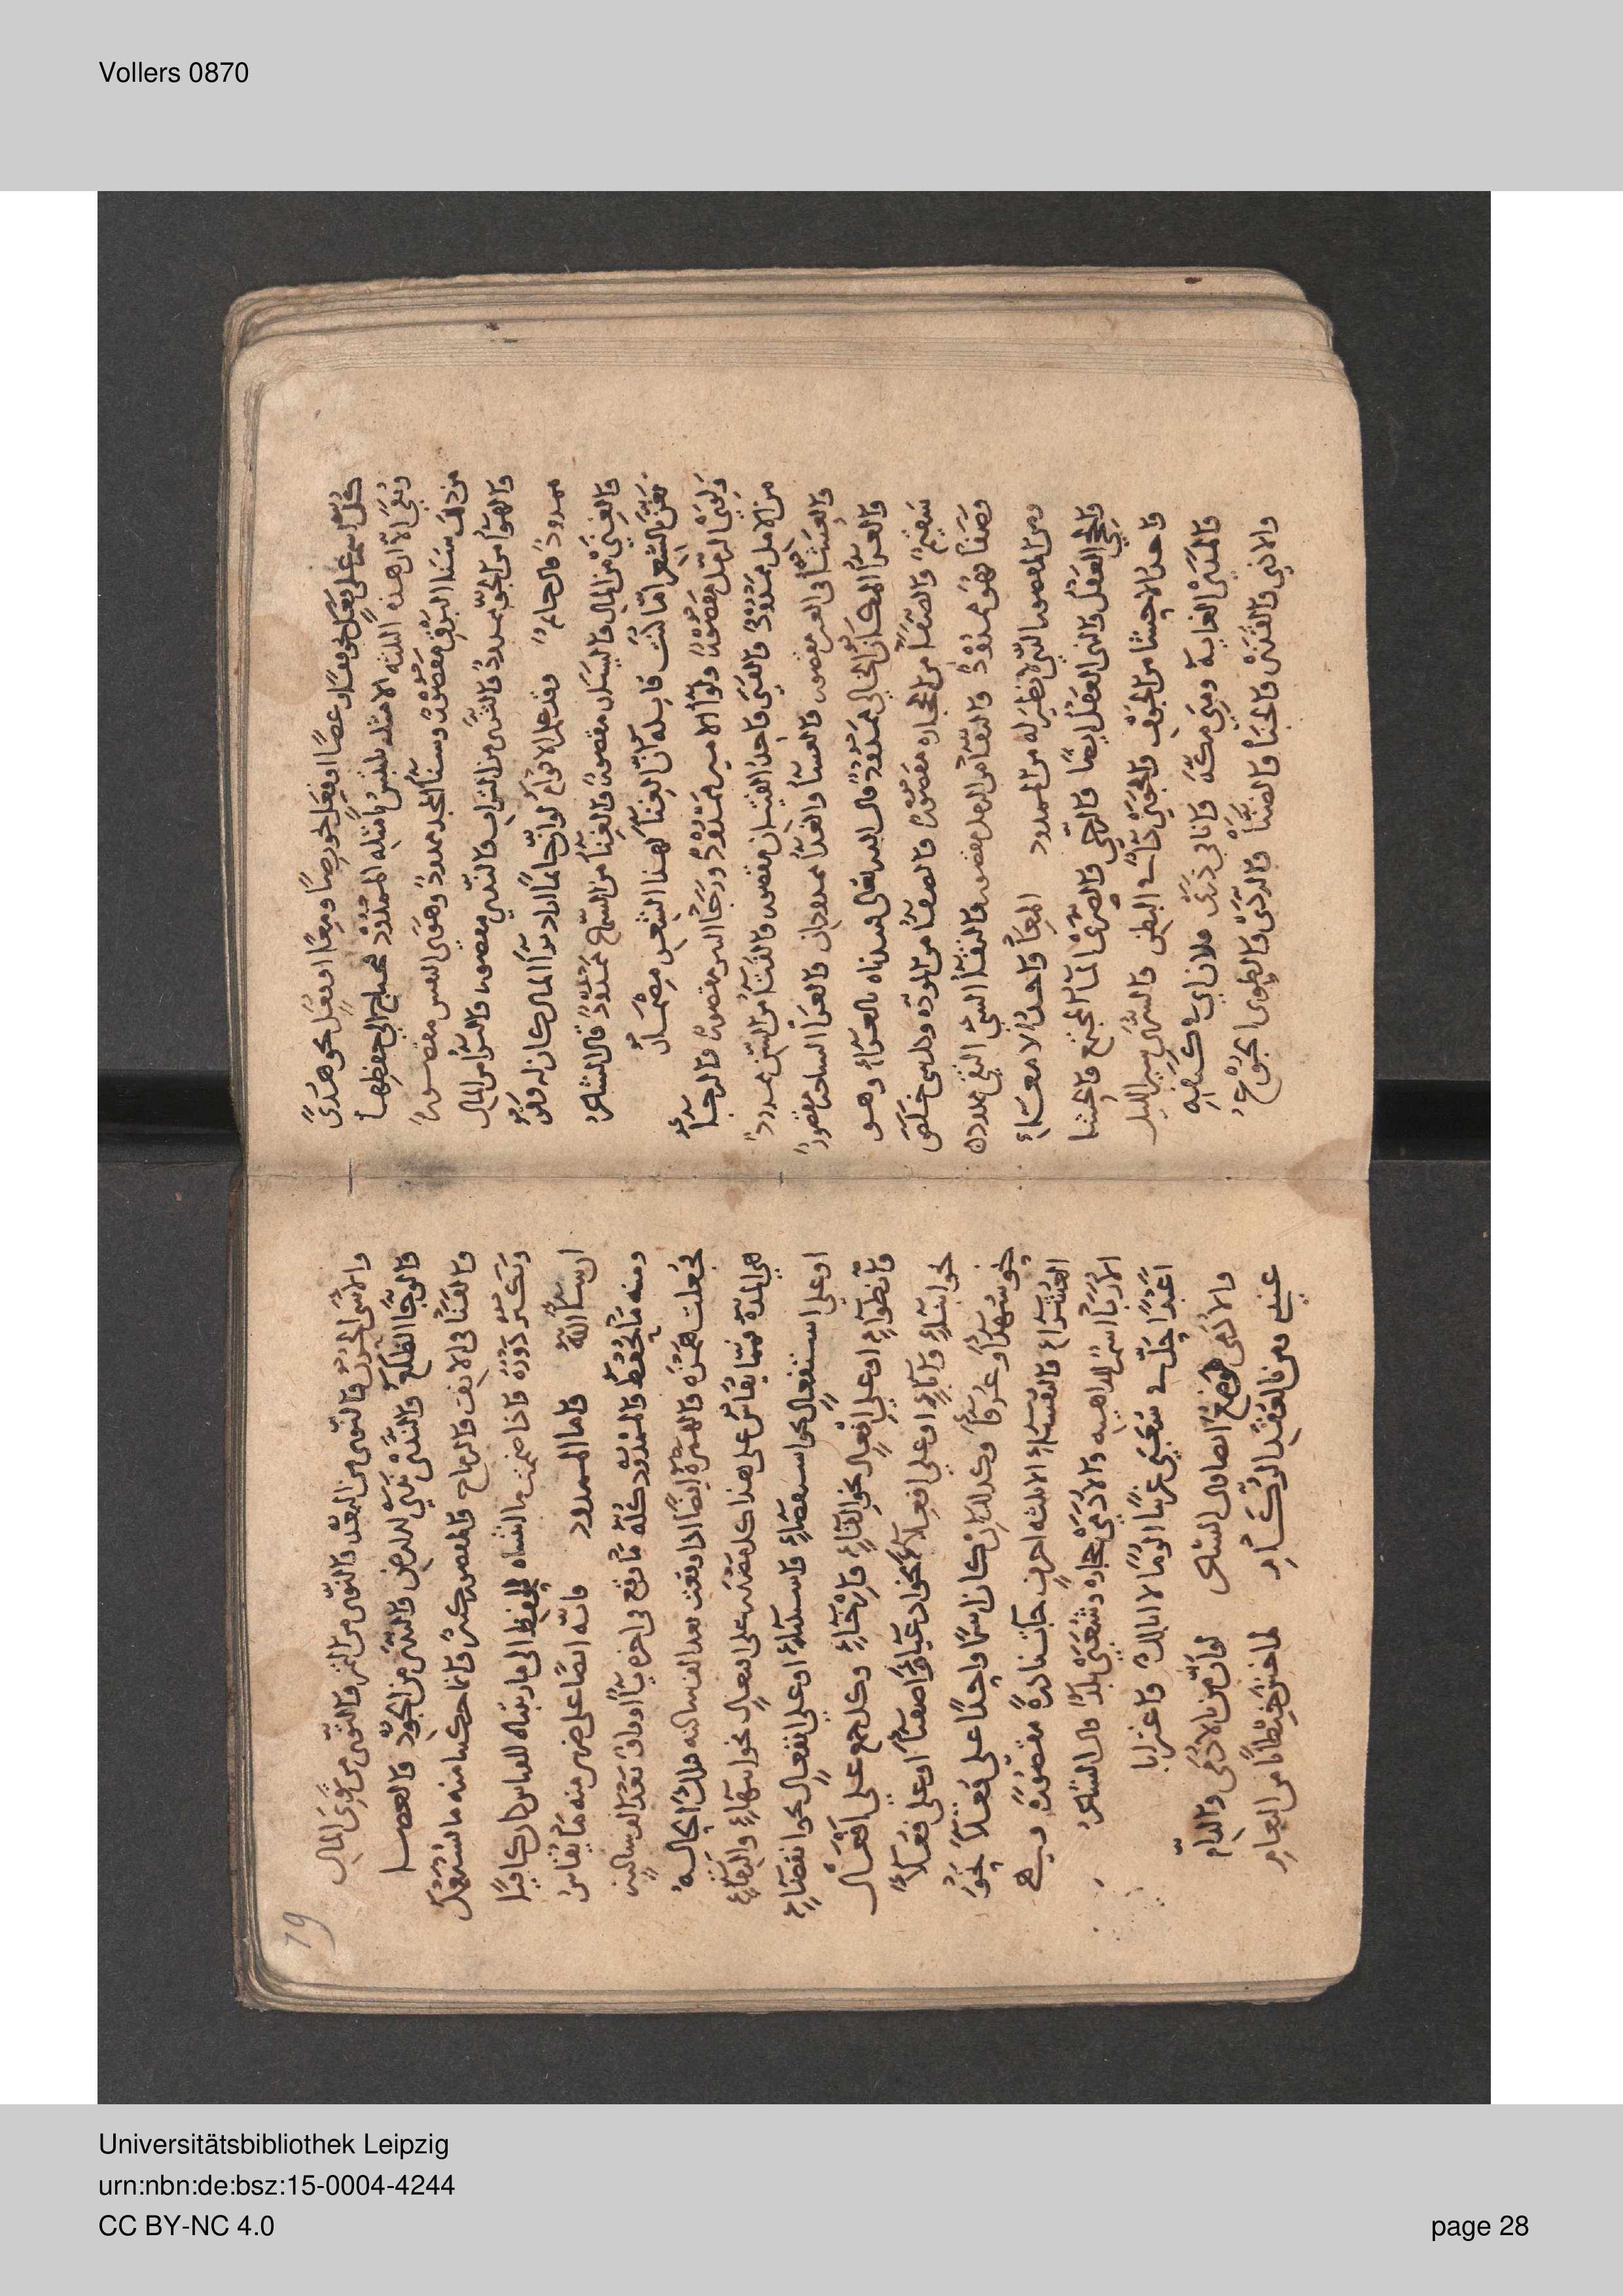 Vollers 0870
كل اسم على فعل نحو قفا وعصا او فعل نحو رضا ومعا او فعل نحو هدى
وبقى الا ان هذه الثلثه الامثله يلتبس بامثله الممدود فيحتاج الى حفظها
من ذلك سنا البرق مقصور وسناء المجد ممدود وهوى النفس مقصور
والهواء من الجو ممدود والثرى من التراب والندى مقصور والثراء من المال
ممدود قال حاتم وقد علم الاقوام لو ان حاتما اراد ثراء المال كان له وفر
والغنى من المال واليسار مقصور والغناء من السماع ممدود قال الشاعر
تغن بالشعر اما كنت قايله ان الغناء لهذا الشعر مضمار
ولوى الرمل مقصور ولواء الامير ممدود ورجا البير مقصور والرجاء
من الامل ممدود والفتى واحد الفتيان مقصور والفتاء من السن ممدود
والعشا في العين مقصور والعشاء والغداء ممدودان والعرا الساحة مقصور
والعراء المكان الخالي ممدود قال الله تعالى فنبذناه بالعراء وهو
سقيم والصفا من الحجاره مقصور والصفاء من المودة وكل شي خلص
وصفا فهو ممدود والنقا من الرمل مقصور والنقاء الشي النقي ممدود
ومن المقصور الذي لا نظير له من الممدود المعا واحد الامعاء
والحجى العقل والنهى العقل ايضا والرحى والصرى الماء المجتمع والحشا
واحد الاحشاء من الجوف والجوى داء في البطن والسرى سير الليل
والمدى الغايه ومنى مكة وانا في ذرى فلان اي في كنفه
والاذى والقذى والخنا والضنا والردى والطوى الجوع
19
والاسى الحزن والنوى من البعد والنوى من التمر والتوى من توى المال
والوجا الظلع والندى ندى الارض والندى من الجود والعصا
والقنا في الانف والرماح والمقصور كثير وانما حكينا منه ما يستعمل
ويكثر دوره فاذا ضممت ما بالحفظ الى ما رتبناه للقياس كان كافيا
ان شا الله واما الممدود فانه ايضا على ضربين منه ما يقاس
ومنه ما يحفظ والممدود كله ما وقع في اخره يا او واو بعد الف ساكنة
فجعلت همزة والهمزة ايضا اذا وقعت بعد الف ساكنه فتلك الحاله
هي المدة فمما يقاس على هذا كل مصدر على افتعال نحو اشتهاء والتقاء
او على استفعال نحو استقصاء واستدعاء او على انفعال نحو انقضاء
وانطواء او على افعال نحو القاء وارخاء وكل جمع على افعال
نحو ابناء واباء او على افعلاء نحو ادعياء واصفياء او على فعلاء
نحو شهداء وعرفاء وكذلك ان كان اسما واحدا على فعلاء نحو
العشراء والنفساء الا ثلثه احرف جات نادرة مقصورة وهي
الاربا اسم للداهيه والادمى حجاره وشعبى بلد قال الشاعر
اعبدا حل في شعبى غريبا الوما لا ابا لك واغترابا
والادمى موضع ايضا قال الشاعر لو ان من بالادمى والدام
عندي ومن بالعقد الركام لم اخش خيطانا من النعام
Universitätsbibliothek Leipzig
urn:nbn:de:bsz:15-0004-4244
CC BY-NC 4.0
page 28